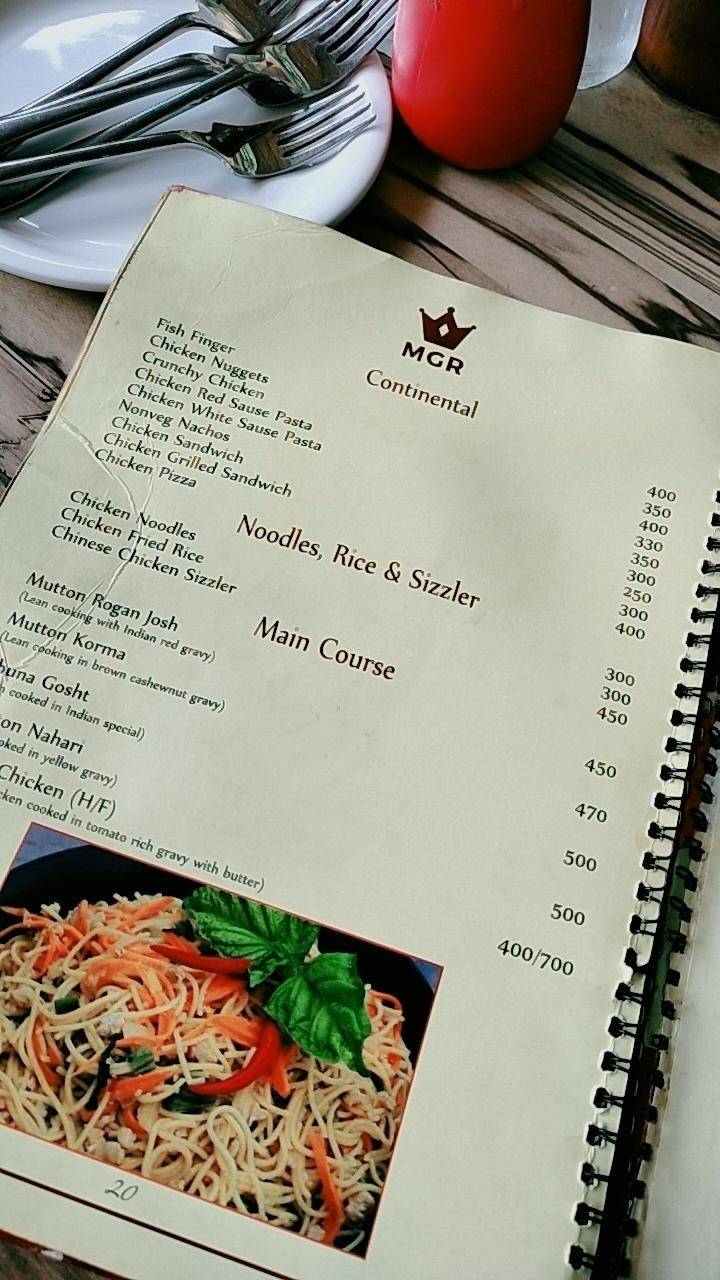 MGR
Continental
Fish Finger 400
Chicken Nuggets 350
Crunchy Chicken 400
Chicken Red Sause Pasta 330
Chicken White Sause Pasta 350
Nonveg Nachos 300
Chicken Sandwich 250
Chicken Grilled Sandwich 300
Chicken Pizza 400
Noodles, Rice & Sizzler
Chicken Noodles 300
Chicken Fried Rice 300
Chinese Chicken Sizzler 450
Main Course
Mutton Rogan Josh 450
(Lean cooking with Indian red gravy)
Mutton Korma 470
(Lean cooking in brown cashewnut gravy)
Gosht 500
cooked in Indian special)
Nahari 500
in yellow gravy)
Chicken (H/F) 400/700
cooked in tomato rich gravy with butter)
20